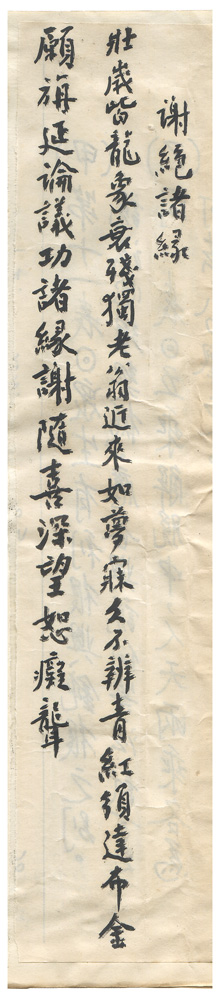 謝絕諸緣
壯歲皆龍象衰殘獨老翁近來如夢寐久不辨青紅須達布金
願旃延論議功諸緣謝隨喜深望恕癡聾